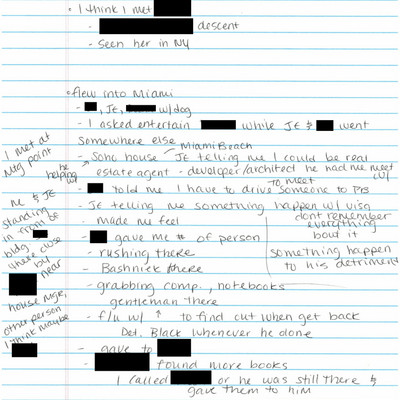 • I think I met
- descent
- seen her in NY
• flew into Miami
- , JE, w/dog
- I asked entertain while JE & went
somewhere else Miami Beach
- Soho house - JE telling me I could be real
estate agent - developer/architect he had me meet w/
- told me I have to drive someone to PB
to meet
- JE telling me something happen w/ visa
dont remember
everything
bout it
- made me feel
something happen
to his detriment
- gave me # of person
- rushing there
- Bashnick there
- grabbing comp., notebooks
gentleman there
- f/u w/ ↑ to find out when get back
Det. Black whenever he done
- gave to
- found more books
I called or he was still there &
gave them to him
I met at
Mtg point
he
helping
w/
me & JE
standing
in front
bldg
close
by
near
house mgr,
other person
I think maybe